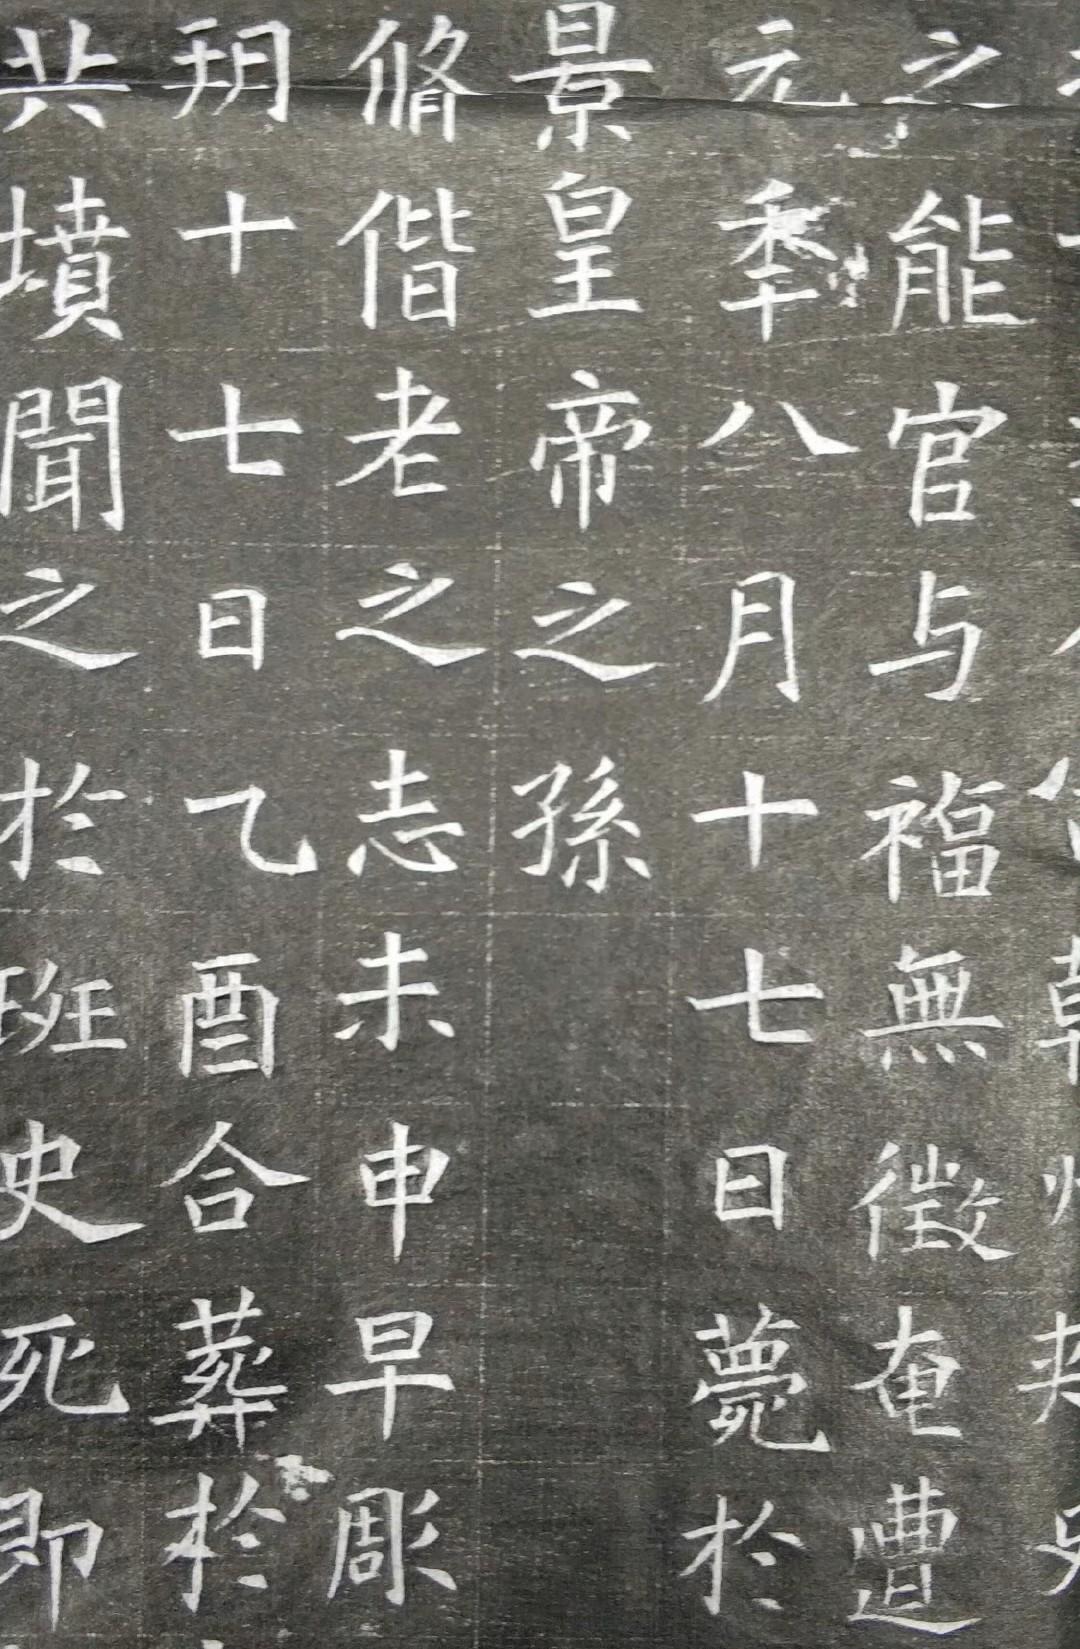 之能官与福無徵奄遭
元秊八月十七日薨於
景皇帝之孫
脩偕老之志未申早彫
玥十七日乙酉合葬於
共墳聞之於班史死即